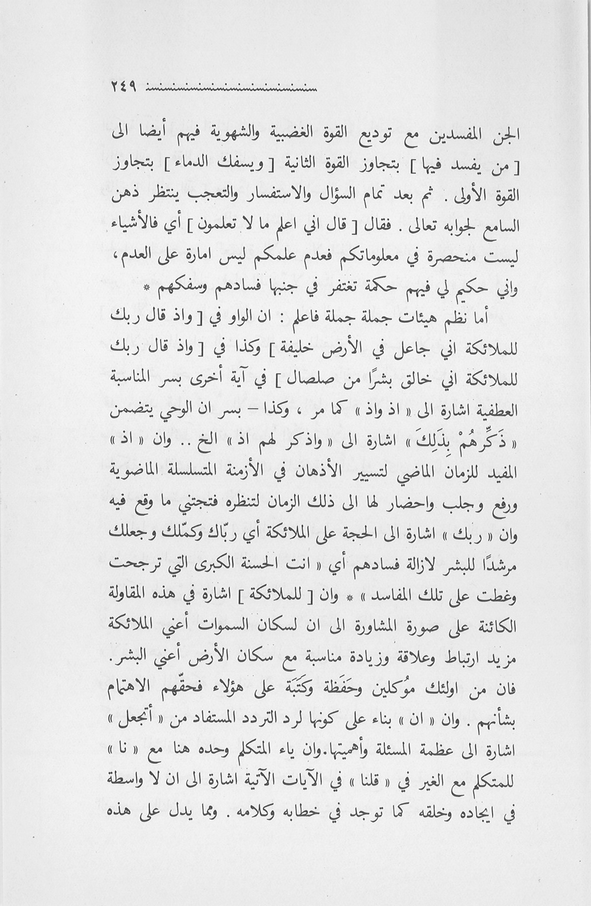 ٢٤٩
الجن المفسدين مع توديع القوة الغضبية والشهوية فيهم أيضا الى
[ من يفسد فيها ] بتجاوز القوة الثانية [ ويسفك الدماء ] بتجاوز
القوة الأولى . ثم بعد تمام السؤال والاستفسار والتعجب ينتظر ذهن
السامع لجوابه تعالى . فقال [ قال اني اعلم ما لا تعلمون ] أي فالأشياء
ليست منحصرة في معلوماتكم فعدم علمكم ليس امارة على العدم،
واني حكيم لي فيهم حكمة تغتفر في جنبها فسادهم وسفكهم *
أما نظم هيئات جملة جملة فاعلم : ان الواو في [ واذ قال ربك
للملائكة اني جاعل في الأرض خليفة ] وكذا في [ واذ قال ربك
للملائكة اني خالق بشرًا من صلصال ] في آية أخرى بسر المناسبة
العطفية اشارة الى « اذ واذ » كما مر ، وكذا – بسر ان الوحي يتضمن
« ذَكِّرهُمْ بِذَلِكَ » اشارة الى « واذكر لهم اذ » الخ .. وان « اذ »
المفيد للزمان الماضي لتسيير الأذهان في الأزمنة المتسلسلة الماضوية
ورفع وجلب واحضار لها الى ذلك الزمان لتنظره فتجتني ما وقع فيه
وان « ربك » اشارة الى الحجة على الملائكة أي ربّاك وكمّلك وجعلك
مرشدًا للبشر لازالة فسادهم أي « انت الحسنة الكبرى التي ترجحت
وغطت على تلك المفاسد » * وان [ للملائكة ] اشارة في هذه المقاولة
الكائنة على صورة المشاورة الى ان لسكان السموات أعني الملائكة
مزيد ارتباط وعلاقة وزيادة مناسبة مع سكان الأرض أعني البشر.
فان من اولئك موُكلين وحَفَظة وكَتَبَة على هؤلاء فحقّهم الاهتمام
بشأنهم . وان « ان » بناء على كونها لرد التردد المستفاد من « أتجعل »
اشارة الى عظمة المسئلة وأهميتها.وان ياء المتكلم وحده هنا مع « نا »
للمتكلم مع الغير في « قلنا » في الآيات الآتية اشارة الى ان لا واسطة
في ايجاده وخلقه كما توجد في خطابه وكلامه . ومما يدل على هذه